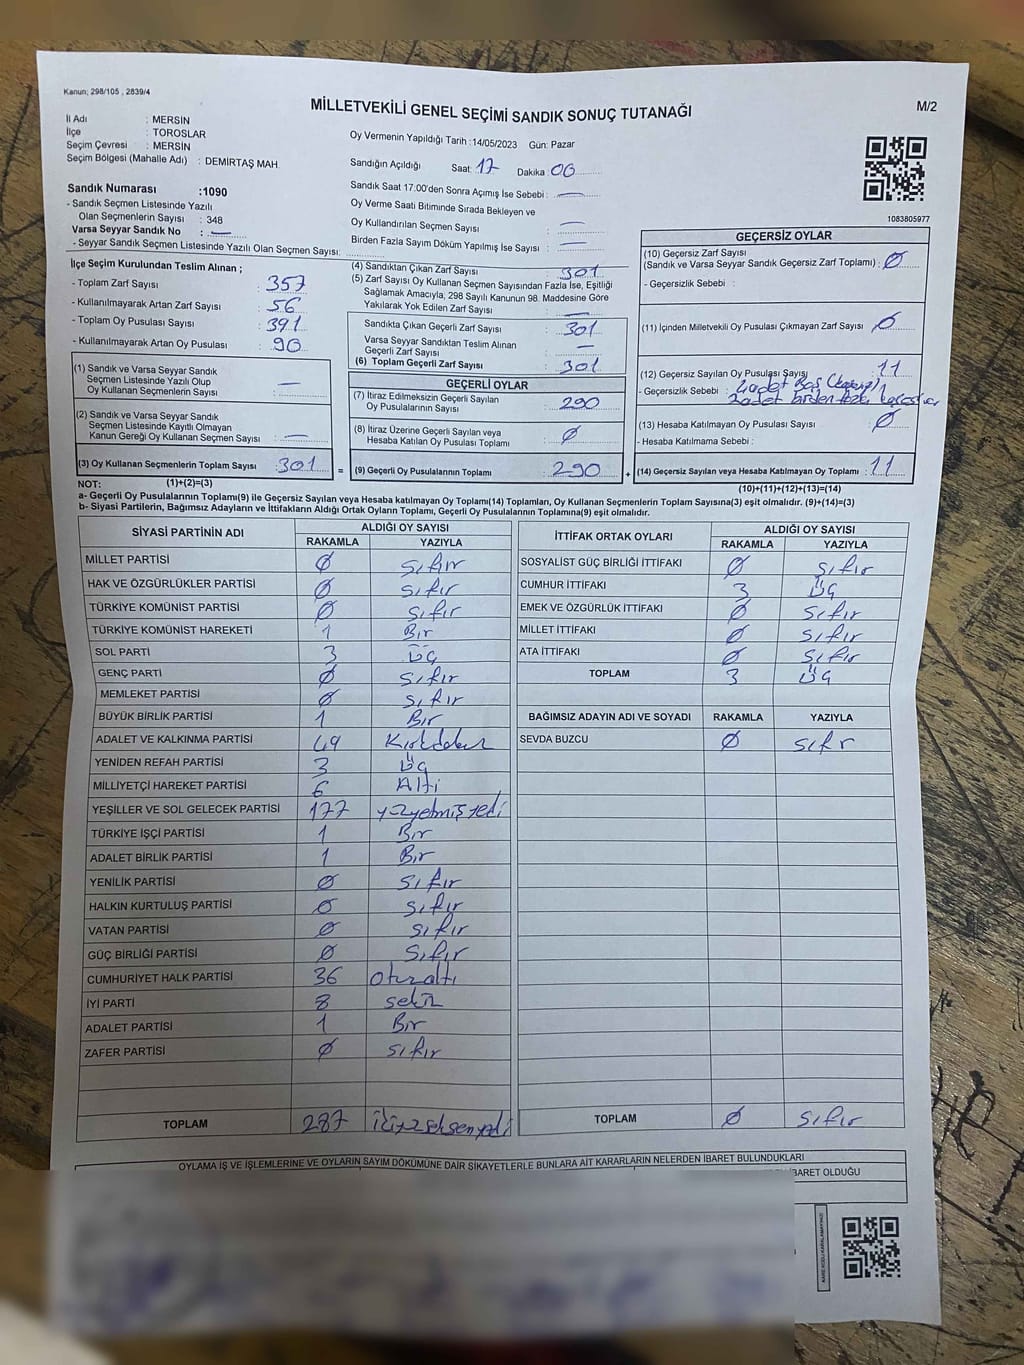 Kanun; 298/105 , 2839/4
MİLLETVEKİLİ GENEL SEÇİMİ SANDIK SONUÇ TUTANAĞI
M/2
İl Adı : MERSİN
İlçe : TOROSLAR
Seçim Çevresi : MERSİN
Seçim Bölgesi (Mahalle Adı) : DEMİRTAŞ MAH.
Sandık Numarası :1090
- Sandık Seçmen Listesinde Yazılı
Olan Seçmenlerin Sayısı : 348
Varsa Seyyar Sandık No : —
- Seyyar Sandık Seçmen Listesinde Yazılı Olan Seçmen Sayısı:
Oy Vermenin Yapıldığı Tarih :14/05/2023 Gün: Pazar
Sandığın Açıldığı Saat: 17 Dakika : 00
Sandık Saat 17.00'den Sonra Açımış İse Sebebi : —
Oy Verme Saati Bitiminde Sırada Bekleyen ve
Oy Kullandırılan Seçmen Sayısı : —
Birden Fazla Sayım Döküm Yapılmış İse Sayısı : —
1083805977
İlçe Seçim Kurulundan Teslim Alınan ;
- Toplam Zarf Sayısı : 357
- Kullanılmayarak Artan Zarf Sayısı : 56
- Toplam Oy Pusulası Sayısı : 391
- Kullanılmayarak Artan Oy Pusulası : 90
(1) Sandık ve Varsa Seyyar Sandık
Seçmen Listesinde Yazılı Olup
Oy Kullanan Seçmenlerin Sayısı : —
(2) Sandık ve Varsa Seyyar Sandık
Seçmen Listesinde Kayıtlı Olmayan
Kanun Gereği Oy Kullanan Seçmen Sayısı : —
(3) Oy Kullanan Seçmenlerin Toplam Sayısı : 301 =
(1)+(2)=(3)
(4) Sandıktan Çıkan Zarf Sayısı : 301
(5) Zarf Sayısı Oy Kullanan Seçmen Sayısından Fazla İse, Eşitliği
Sağlamak Amacıyla, 298 Sayılı Kanunun 98. Maddesine Göre
Yakılarak Yok Edilen Zarf Sayısı : —
Sandıkta Çıkan Geçerli Zarf Sayısı : 301
Varsa Seyyar Sandıktan Teslim Alınan
Geçerli Zarf Sayısı : —
(6) Toplam Geçerli Zarf Sayısı : 301
GEÇERLİ OYLAR
(7) İtiraz Edilmeksizin Geçerli Sayılan
Oy Pusulalarının Sayısı : 290
(8) İtiraz Üzerine Geçerli Sayılan veya
Hesaba Katılan Oy Pusulası Toplamı : 0
(9) Geçerli Oy Pusulalarının Toplamı : 290 +
GEÇERSİZ OYLAR
(10) Geçersiz Zarf Sayısı
(Sandık ve Varsa Seyyar Sandık Geçersiz Zarf Toplamı) : 0
- Geçersizlik Sebebi :
(11) İçinden Milletvekili Oy Pusulası Çıkmayan Zarf Sayısı : 0
(12) Geçersiz Sayılan Oy Pusulası Sayısı : 11
- Geçersizlik Sebebi : adet Boş
adet birden fazla
(13) Hesaba Katılmayan Oy Pusulası Sayısı : 0
- Hesaba Katılmama Sebebi :
(14) Geçersiz Sayılan veya Hesaba Katılmayan Oy Toplamı : 11
(10)+(11)+(12)+(13)=(14)
NOT:
a- Geçerli Oy Pusulalarının Toplamı(9) ile Geçersiz Sayılan veya Hesaba katılmayan Oy Toplamı(14) Toplamları, Oy Kullanan Seçmenlerin Toplam Sayısına(3) eşit olmalıdır. (9)+(14)=(3)
b- Siyasi Partilerin, Bağımsız Adayların ve İttifakların Aldığı Ortak Oyların Toplamı, Geçerli Oy Pusulalarının Toplamına(9) eşit olmalıdır.
SİYASİ PARTİNİN ADI ALDIĞI OY SAYISI
RAKAMLA YAZIYLA
MİLLET PARTİSİ 0 Sıfır
HAK VE ÖZGÜRLÜKLER PARTİSİ 0 Sıfır
TÜRKİYE KOMÜNİST PARTİSİ 0 Sıfır
TÜRKİYE KOMÜNİST HAREKETİ 1 Bir
SOL PARTİ 3 Üç
GENÇ PARTİ 0 Sıfır
MEMLEKET PARTİSİ 0 Sıfır
BÜYÜK BİRLİK PARTİSİ 1 Bir
ADALET VE KALKINMA PARTİSİ 49 Kırkdokuz
YENİDEN REFAH PARTİSİ 3 Üç
MİLLİYETÇİ HAREKET PARTİSİ 6 Altı
YEŞİLLER VE SOL GELECEK PARTİSİ 177 yüzyetmişyedi
TÜRKİYE İŞÇİ PARTİSİ 1 Bir
ADALET BİRLİK PARTİSİ 1 Bir
YENİLİK PARTİSİ 0 Sıfır
HALKIN KURTULUŞ PARTİSİ 0 Sıfır
VATAN PARTİSİ 0 Sıfır
GÜÇ BİRLİĞİ PARTİSİ 0 Sıfır
CUMHURİYET HALK PARTİSİ 36 Otuzaltı
İYİ PARTİ 8 Sekiz
ADALET PARTİSİ 1 Bir
ZAFER PARTİSİ 0 Sıfır
TOPLAM 287 ikiyüzseksenyedi
İTTİFAK ORTAK OYLARI ALDIĞI OY SAYISI
RAKAMLA YAZIYLA
SOSYALİST GÜÇ BİRLİĞİ İTTİFAKI 0 Sıfır
CUMHUR İTTİFAKI 3 Üç
EMEK VE ÖZGÜRLÜK İTTİFAKI 0 Sıfır
MİLLET İTTİFAKI 0 Sıfır
ATA İTTİFAKI 0 Sıfır
TOPLAM 3 Üç
BAĞIMSIZ ADAYIN ADI VE SOYADI RAKAMLA YAZIYLA
SEVDA BUZCU 0 Sıfır
TOPLAM 0 Sıfır
OYLAMA İŞ VE İŞLEMLERİNE VE OYLARIN SAYIM DÖKÜMÜNE DAİR ŞİKAYETLERLE BUNLARA AİT KARARLARIN NELERDEN İBARET BULUNDUKLARI
İBARET OLDUĞU
KARE KODU KARALAMAYINIZ!